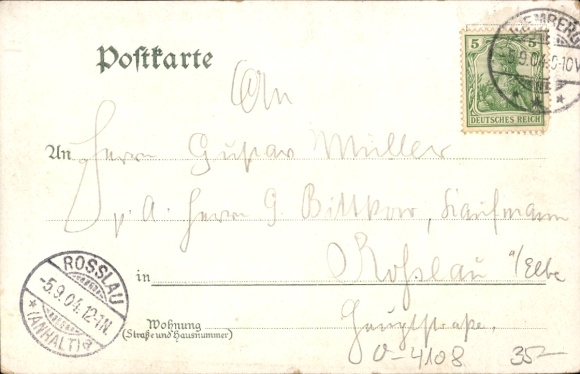 Postkarte
5 5
DEUTSCHES REICH
KEMBERG
5.9.04. 9-10V.
An Herrn Gustav Müller
p. A. Herrn G. Bittkow, Kaufmann
in Roßlau a/Elbe
Wohnung
(Straße und Hausnummer)
Hauptstraße.
ROSSLAU
-5.9.04. 12-1N.
* (ANHALT) a
0-4108 35-